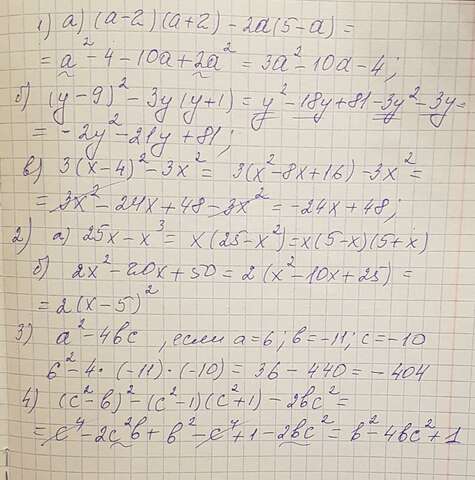 1) а) (a-2)(a+2) - 2a(5-a) =
= a² - 4 - 10a + 2a² = 3a² - 10a - 4;
б) (y-9)² - 3y(y+1) = y² - 18y + 81 - 3y² - 3y =
= -2y² - 21y + 81;
в) 3(x-4)² - 3x² = 3(x² - 8x + 16) - 3x² =
= 3x² - 24x + 48 - 3x² = -24x + 48;
2) а) 25x - x³ = x(25 - x²) = x(5-x)(5+x)
б) 2x² - 20x + 50 = 2(x² - 10x + 25) =
= 2(x-5)²
3) a² - 4bc, если a=6; b=-11; c=-10
6² - 4·(-11)·(-10) = 36 - 440 = -404
4) (c² - b)² - (c² - 1)(c² + 1) - 2bc² =
= c⁴ - 2c²b + b² - c⁴ + 1 - 2bc² = b² - 4bc² + 1